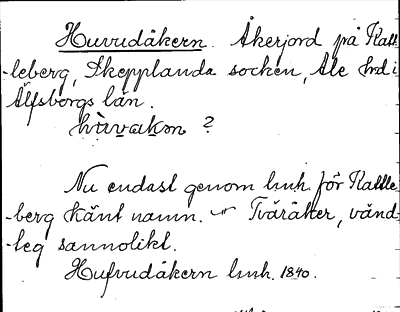 Huvudåkern. Åkerjord på Katt-
-leberg, Skepplanda socken, Ale hrd i
Älfsborgs län.
hùvakɷn ?
Nu endast genom lmh. för Kattle-
-berg känt namn. Tväråker, vänd-
-teg sannolikt.
Hufvudåkern lmh. 1840.